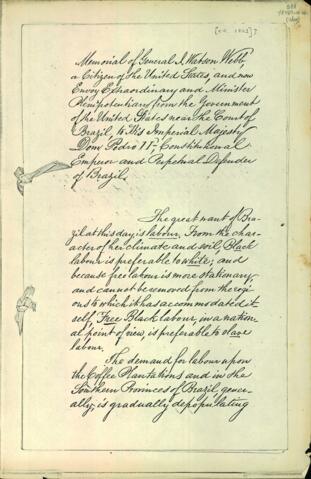 [ca. 1862]?
Memorial of General J. Watson Webb,
a Citizen of the United States, and now
Envoy Extraordinary and Minister
Plenipotentiary from the Government
of the United States near the Court of
Brazil, to His Imperial Majesty
Dom Pedro II, Constitutional
Emperor and Perpetual Defender
of Brazil.
The great want of Bra-
zil at this day, is labour. From the char-
acter of her climate and soil, Black
labour is preferable to white; and
because free labour is more stationary,
and cannot be removed from the regi-
ons to which it has accommodated it
self, Free Black labour, in a nation-
al point of view, is preferable to slave
labour.
The demand for labour upon
the Coffee Plantations and in the
Southern Provinces of Brazil, gener-
ally, is gradually depopulating